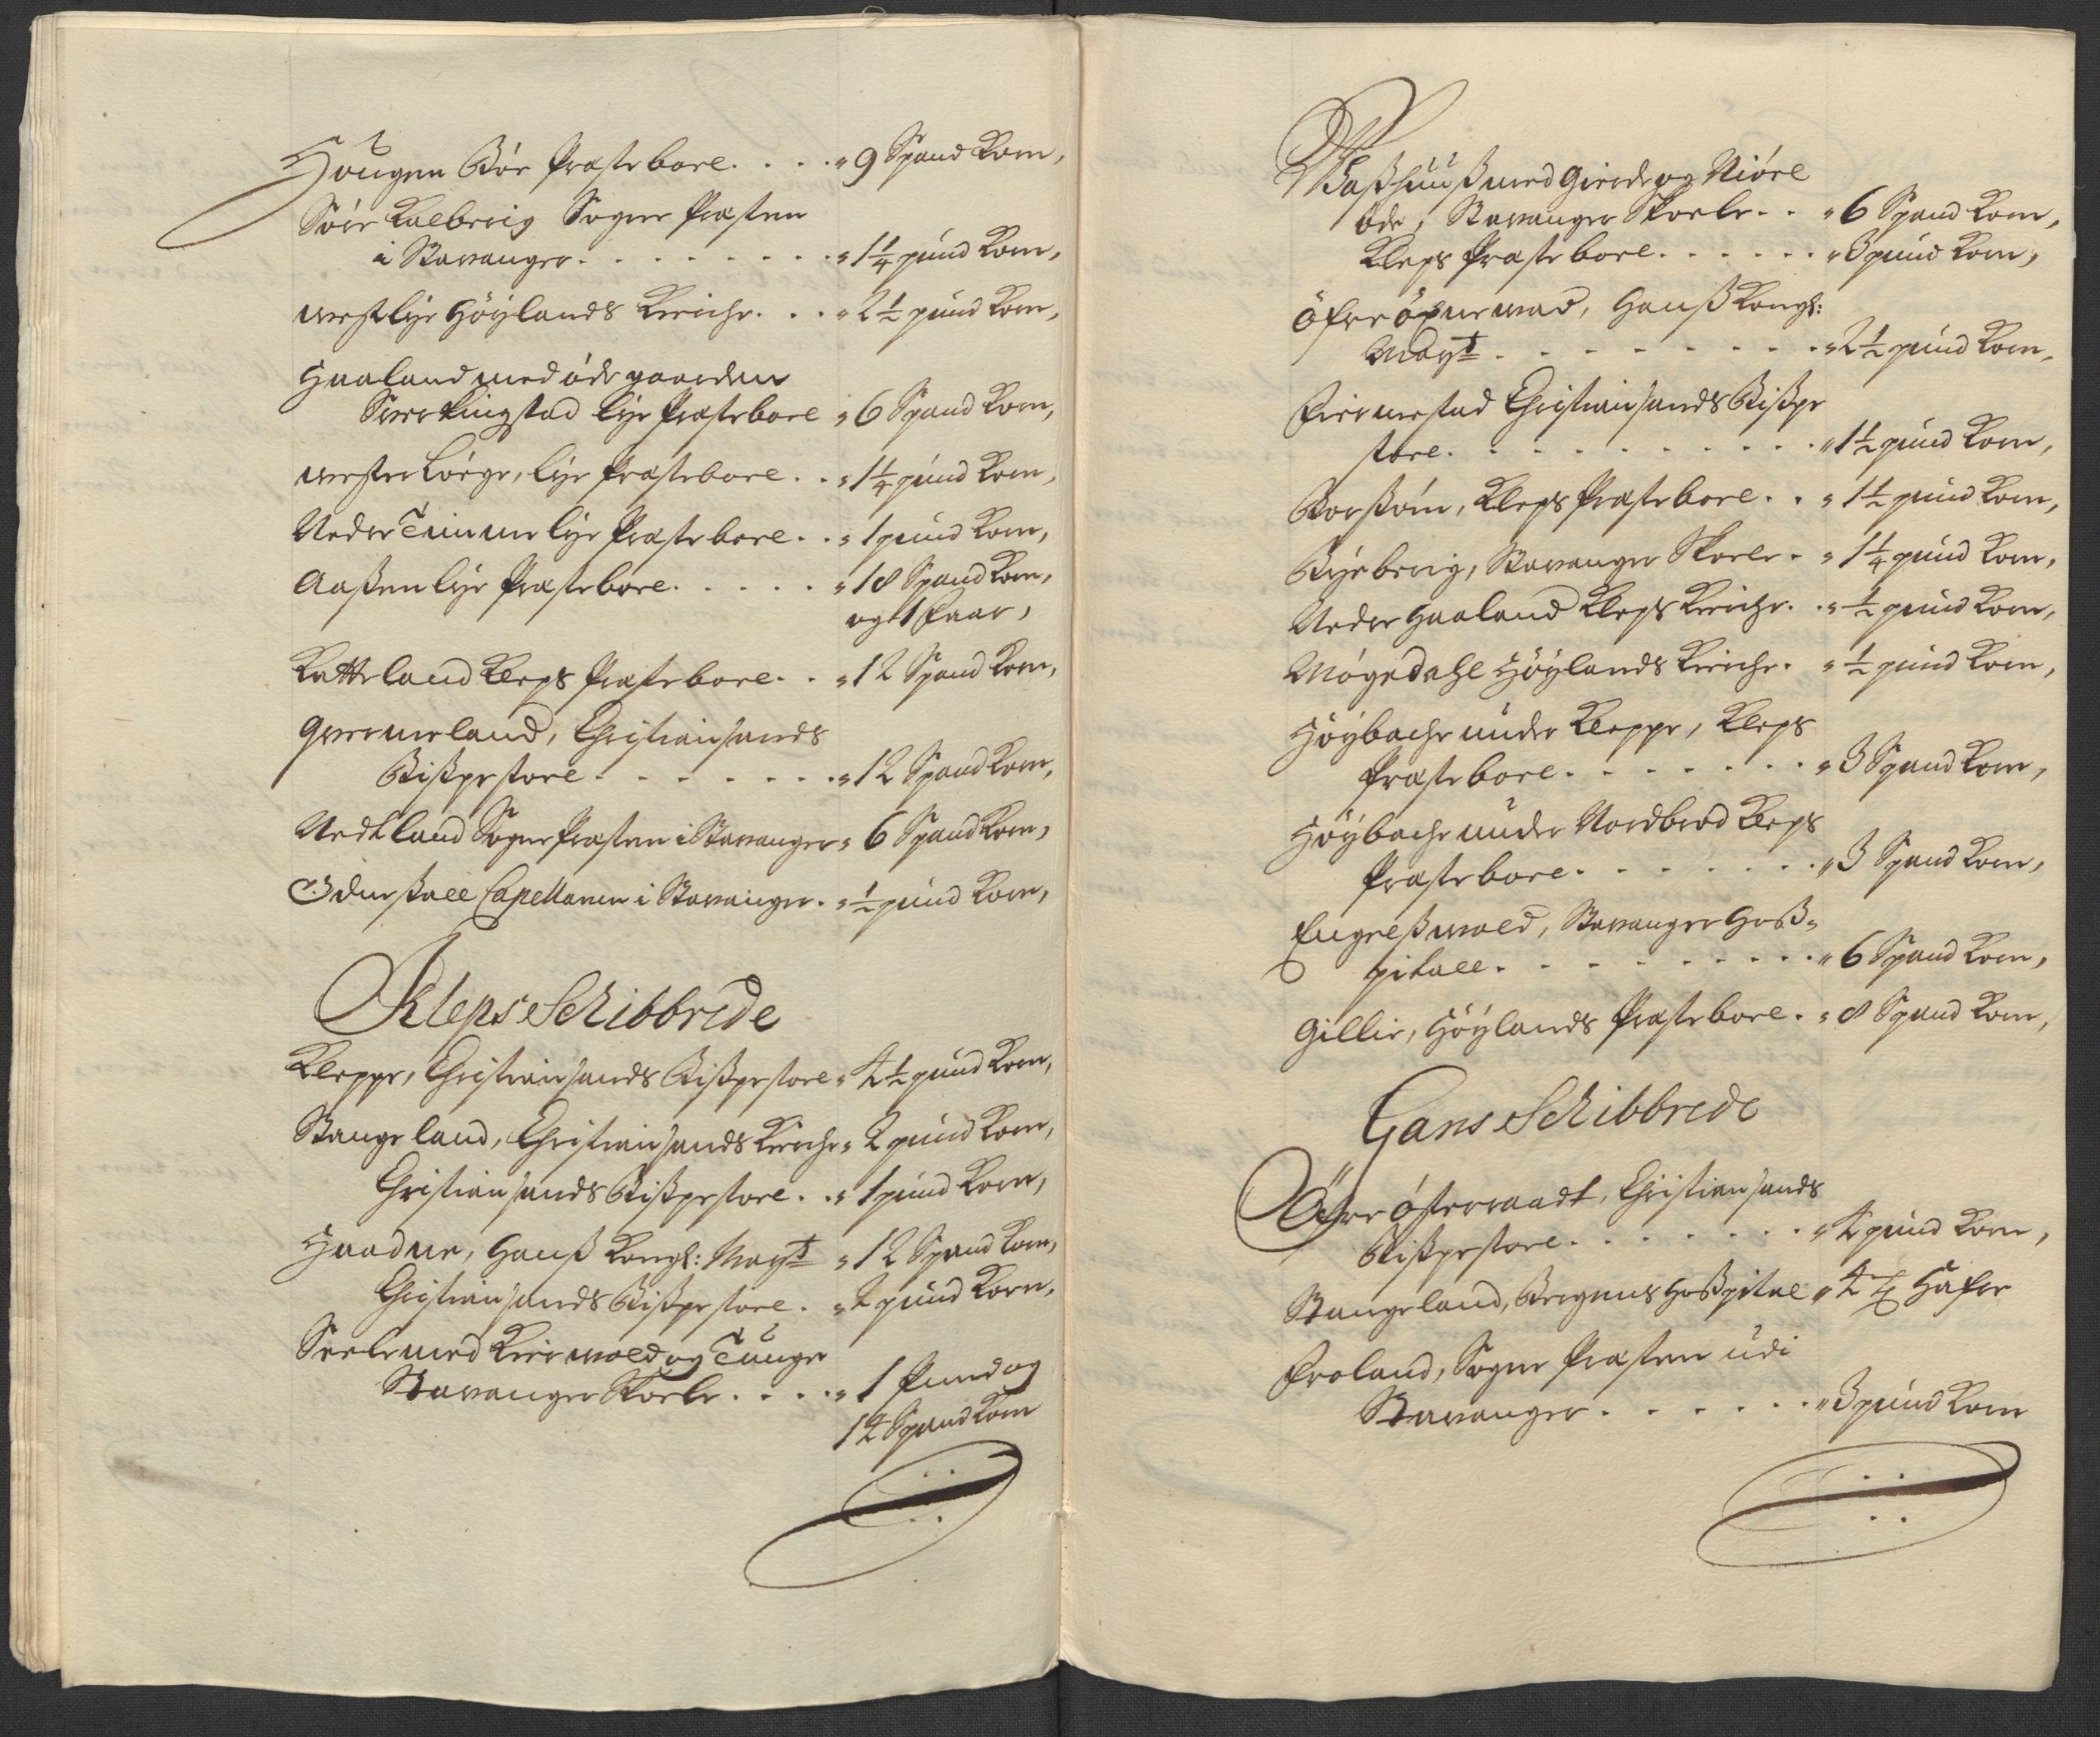 Hougen Böe Præstebore. . . . " 9 Spand Korn,
Söer Kalberig Sogne Præsten
i Stavanger. . . . . . . . " 1 1/4 pund Korn,
westlye Höylands Kirche. . . " 2 1/2 pund Korn,
Haaland med öde gaarden
Sver Kingstad Lye Præstebore " 6 Spand Korn,
wester Löege, Lye Præstebore. . " 1 1/4 pund Korn,
Neder Timme Lye Præstebore. . " 1 pund Korn,
Aassen Lye Præstebore. . . . . " 18 Spand Korn,
og 1 Faar,
Katteland Kleps Præstebore. . " 12 Spand Korn,
Qverneland, Christiansands
Bispestore. . . . . . . " 12 Spand Korn,
Nedland Sogne Præsten i Stavanger " 6 Spand Korn,
Capellanen i Stavanger. " 1/2 pund Korn,
Kleps Schibbrede
Kleppe, Christiansands Bispestore " 4 1/2 pund Korn,
Stangeland, Christiansands Kirche " 2 pund Korn,
Christiansands Bispestore. . " 1 pund Korn,
Haadne, Hanss Kongl: Mayt " 12 Spand Korn,
Christiansands Bispestore. " 2 pund Korn,
Seele med Kierwold og Tunge
Stavanger Skoele. . . . " 1 Pund og
14 Spand Korn
Wasshuuss med Gierde og Niöre
öde, Stavanger Skoele. . " 6 Spand Korn,
Kleps Præstebore. . . . . . " 3 pund Korn,
Öfre öxnewad, Hanss Kongl:
Mayt. . . . . . . . . " 2 1/2 pund Korn,
Friermestad Christiansands Bispe
store. . . . . . . . . . " 1 1/2 pund Korn,
Borssöm, Kleps Præstebore. . " 1 1/2 pund Korn,
Byeberig, Stavanger Skoele. " 1 1/4 pund Korn,
Neder Haaland Kleps Kirche. . " 1/2 pund Korn,
Mögedahl Höylands Kirche. " 1/2 pund Korn,
Höybache under Kleppe, Kleps
Præstebore. . . . . . . " 3 Spand Korn,
Höybache under Nordbröd Kleps
Præstebore. . . . . . . " 3 Spand Korn,
Engelsswold, Stavanger Hoss-
pitall. . . . . . . . . " 6 Spand Korn,
Gillie, Höylands Præstebore. " 8 Spand Korn,
Gans Schibbrede
Öfre österraadt, Christiansands
Bispestore. . . . . . . " 4 pund Korn,
Stangeland, Bergens Hosspital " 4 Hafre
Froland, Sogne Præsten udi
Stavanger. . . . . . " 3 pund Korn